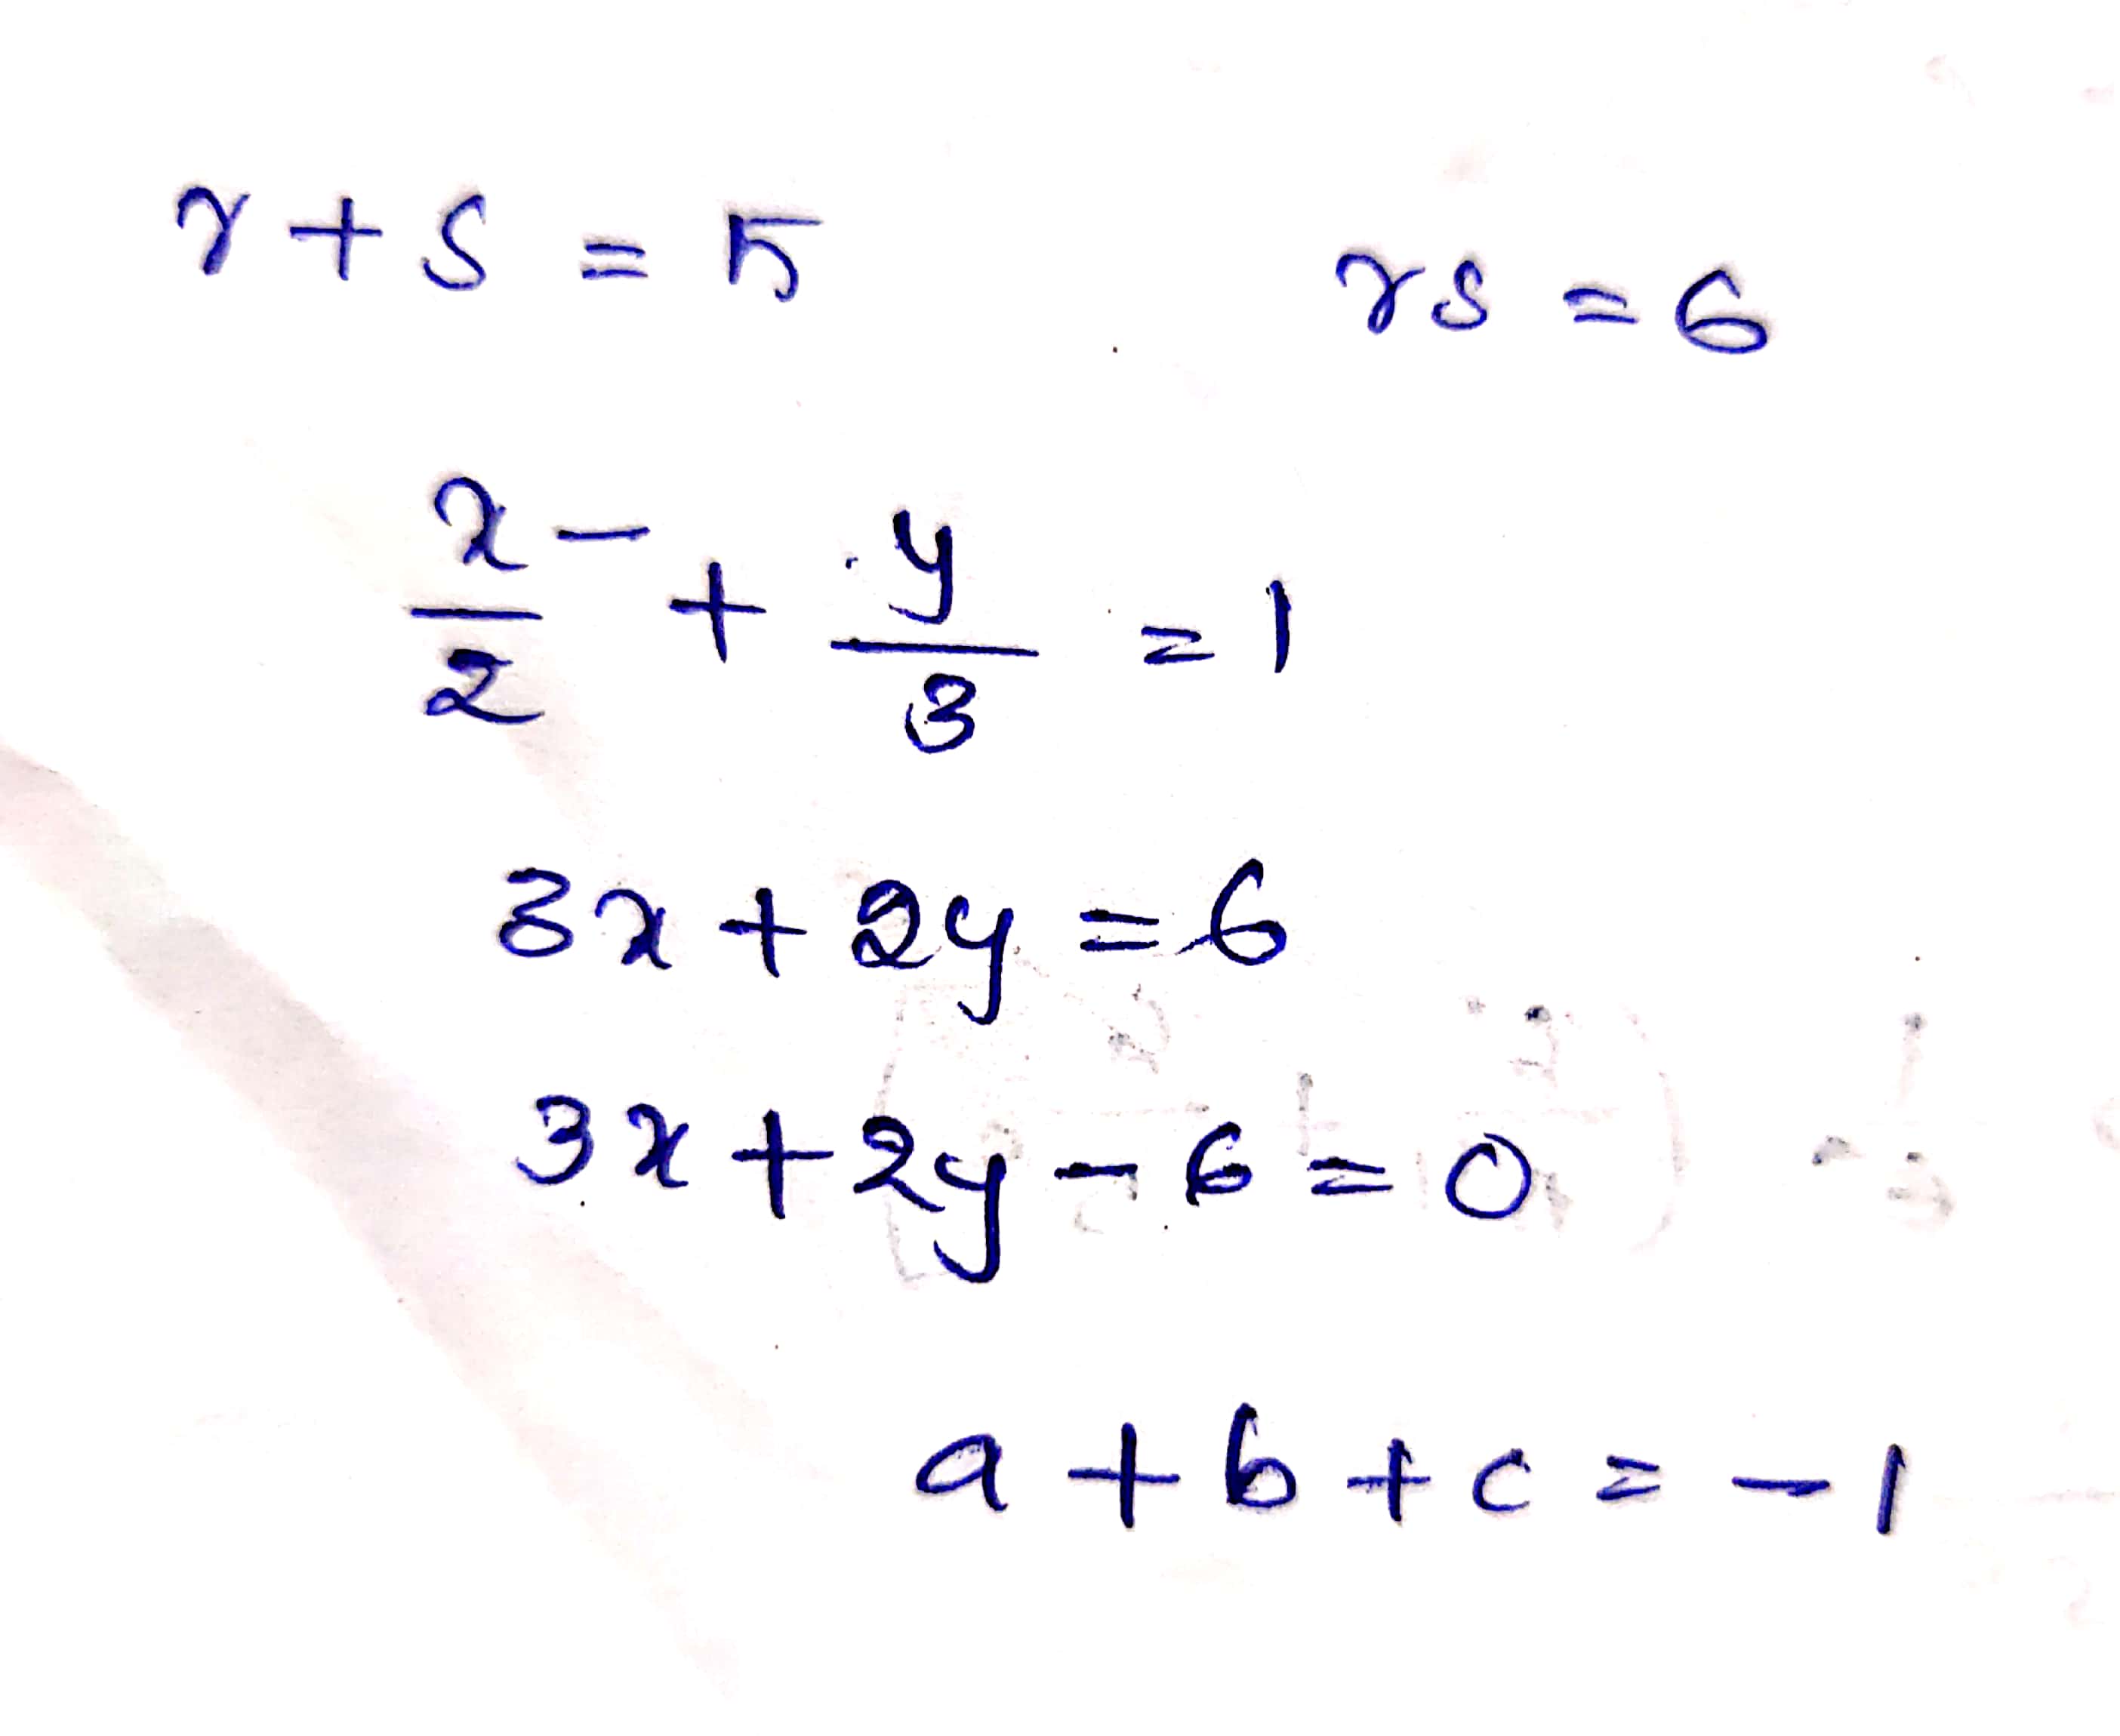 r + s = 5 rs = 6
x/2 + y/3 = 1
3x + 2y = 6
3x + 2y - 6 = 0
a + b + c = -1